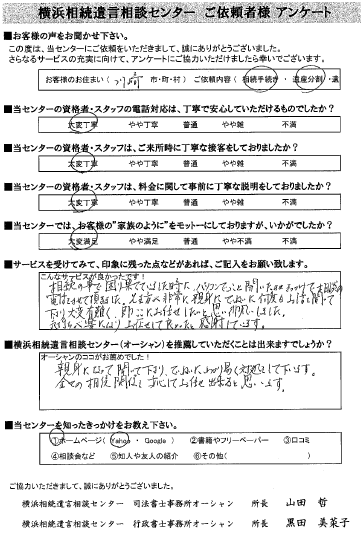 横浜相続遺言相談センター ご依頼者様 アンケート
■お客様の声をお聞かせ下さい。
この度は、当センターにご依頼をいただきまして、誠にありがとうございました。
さらなるサービスの充実に向けて、アンケートにご協力いただけましたら幸いでございます。
お客様のお住まい( 市・町・村) ご依頼内容( 相続手続き ・ 遺産分割 ・ 遺
■当センターの資格者・スタッフの電話対応は、丁寧で安心していただけるものでしたか?
大変丁寧 やや丁寧 普通 やや雑 不満
■当センターの資格者・スタッフは、ご来所時に丁寧な接客をしておりましたか?
大変丁寧 やや丁寧 普通 やや雑 不満
■当センターの資格者・スタッフは、料金に関して事前に丁寧な説明をしておりましたか?
大変丁寧 やや丁寧 普通 やや雑 不満
■当センターでは、お客様の"家族のように"をモットーにしておりますが、いかがでしたか?
大変満足 やや満足 普通 やや不満 不満
■サービスを受けてみて、印象に残った点などがあれば、ご記入をお願い致します。
こんなサービスが良かったです!
相続の事で困り果てていた時に、パソコンで
電話させて頂き
下さり大変有難く、
感謝しています。
■横浜相続遺言相談センター(オーシャン)を推薦していただくことは出来ますでしょうか?
オーシャンのココがお薦めでした!
親身になって聞いて下さり、ていねいに
全ての相続関係 お任せ出来ると思います。
■当センターを知ったきっかけをお教え下さい。
①ホームページ( Yahoo ・ Google ) ②書籍やフリーペーパー ③口コミ
④相談会など ⑤知人や友人の紹介 ⑥その他( )
ご協力いただきまして、誠にありがとうございました。
横浜相続遺言相談センター 司法書士事務所オーシャン 所長 山田 哲
横浜相続遺言相談センター 行政書士事務所オーシャン 所長 黒田 美菜子